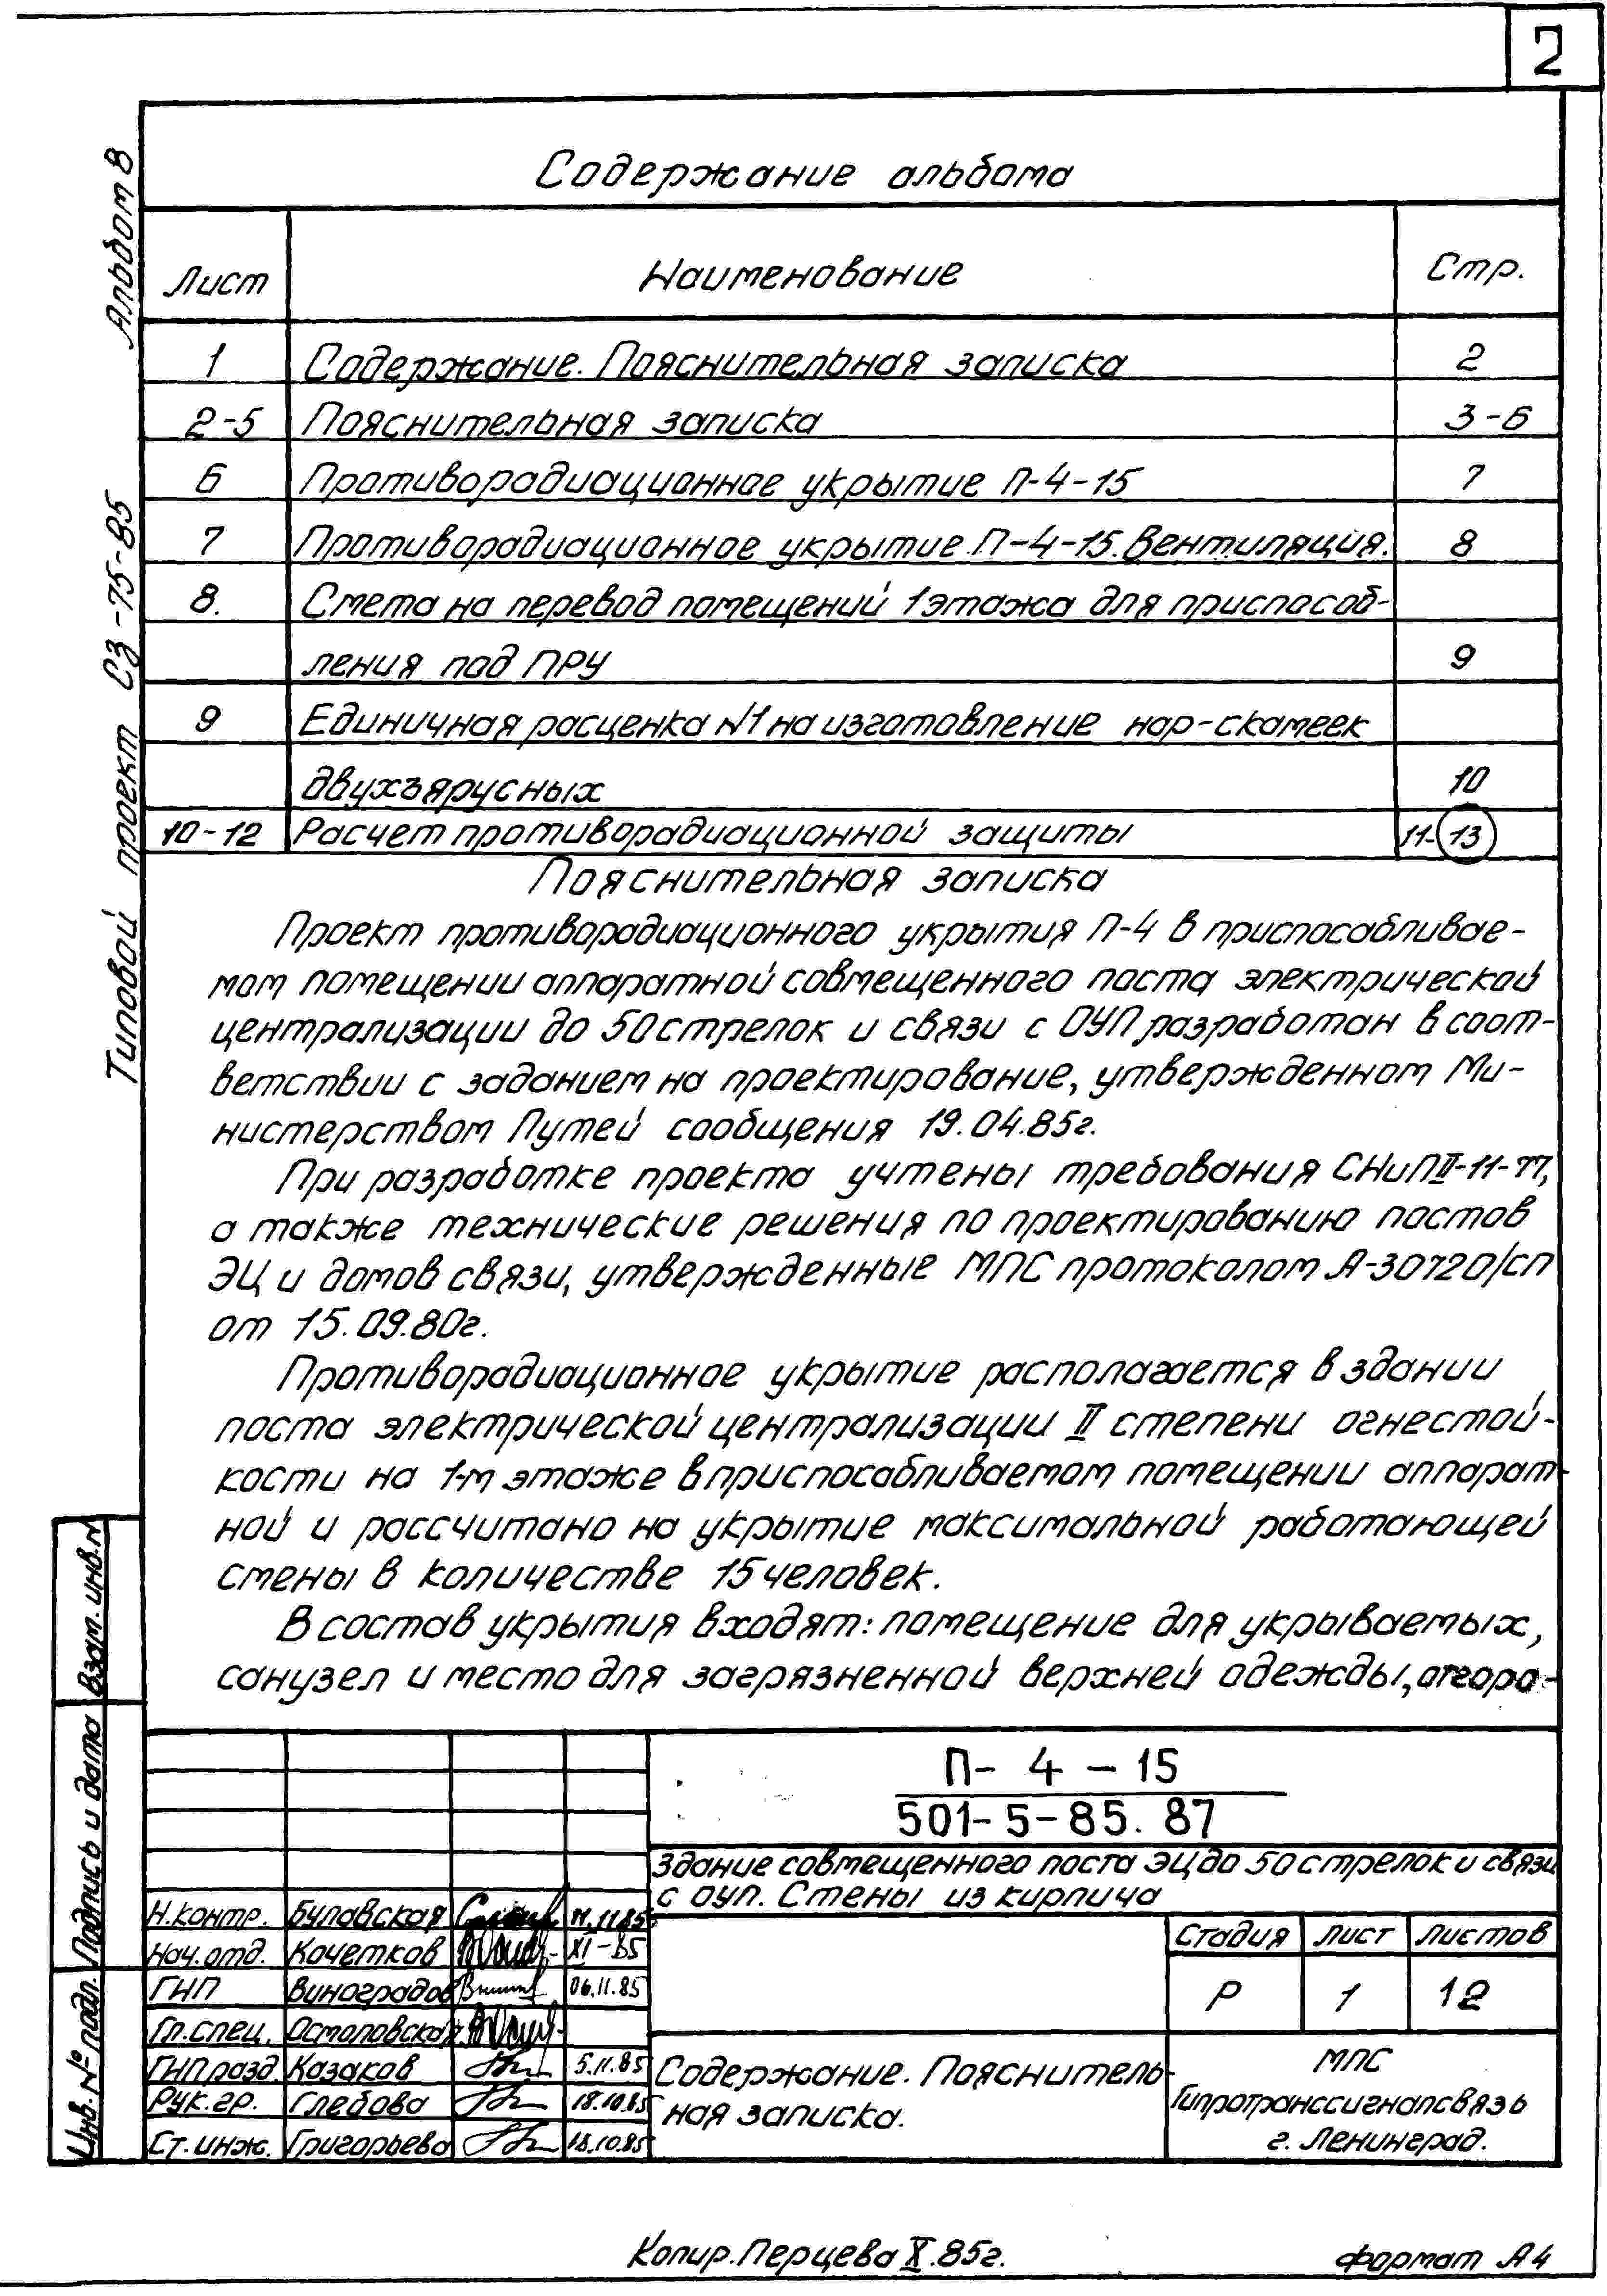 2
Содержание альбома
Лист Наименование Стр.
1 Содержание. Пояснительная записка 2
2-5 Пояснительная записка 3-6
6 Противорадиационное укрытие П-4-15 7
7 Противорадиационное укрытие П-4-15. Вентиляция. 8
8. Смета на перевод помещений 1 этажа для приспособ-
ления под ПРУ 9
9 Единичная расценка N1 на изготовление нар-скамеек
двухъярусных 10
10-12 Расчет противорадиационной защиты 11-13
Пояснительная записка
Проект противорадиационного укрытия П-4 в приспосабливае-
мом помещении аппаратной совмещенного поста электрической
централизации до 50 стрелок и связи с ОУП разработан в соот-
ветствии с заданием на проектирование, утвержденном Ми-
нистерством Путей сообщения 19.04.85г.
При разработке проекта учтены требования СНиП II-11-77,
а также технические решения по проектированию постов
ЭЦ и домов связи, утвержденные МПС протоколом А-30720/СП
от 15.09.80г.
Противорадиационное укрытие располагается в здании
поста электрической централизации II степени огнестой-
кости на 1-м этаже в приспосабливаемом помещении аппарат-
ной и рассчитано на укрытие максимальной работающей
смены в количестве 15 человек.
В состав укрытия входят: помещение для укрываемых,
санузел и место для загрязненной верхней одежды, отгоро-
Альбом 8
Типовой проект СЗ-75-85
Взам. инв. N
Подпись и дата
Инв. № подл.
П- 4 - 15
501-5-85.87
Здание совмещенного поста ЭЦ до 50 стрелок и связи
с ОУП. Стены из кирпича
Н.контр. Булавская 11.11.85
Нач.отд. Кочетков XI-85
ГНП Виноградов 06.11.85
Гл.спец. Остоловская
ГНП разд. Казаков 5.11.85
Рук.гр. Глебова 18.10.85
Ст.инж. Григорьева 18.10.85
Стадия Лист Листов
Р 1 12
Содержание. Пояснитель-
ная записка.
МПС
Гипротранссигналсвязь
г. Ленинград.
Копир. Перцева X.85г.
Формат А4